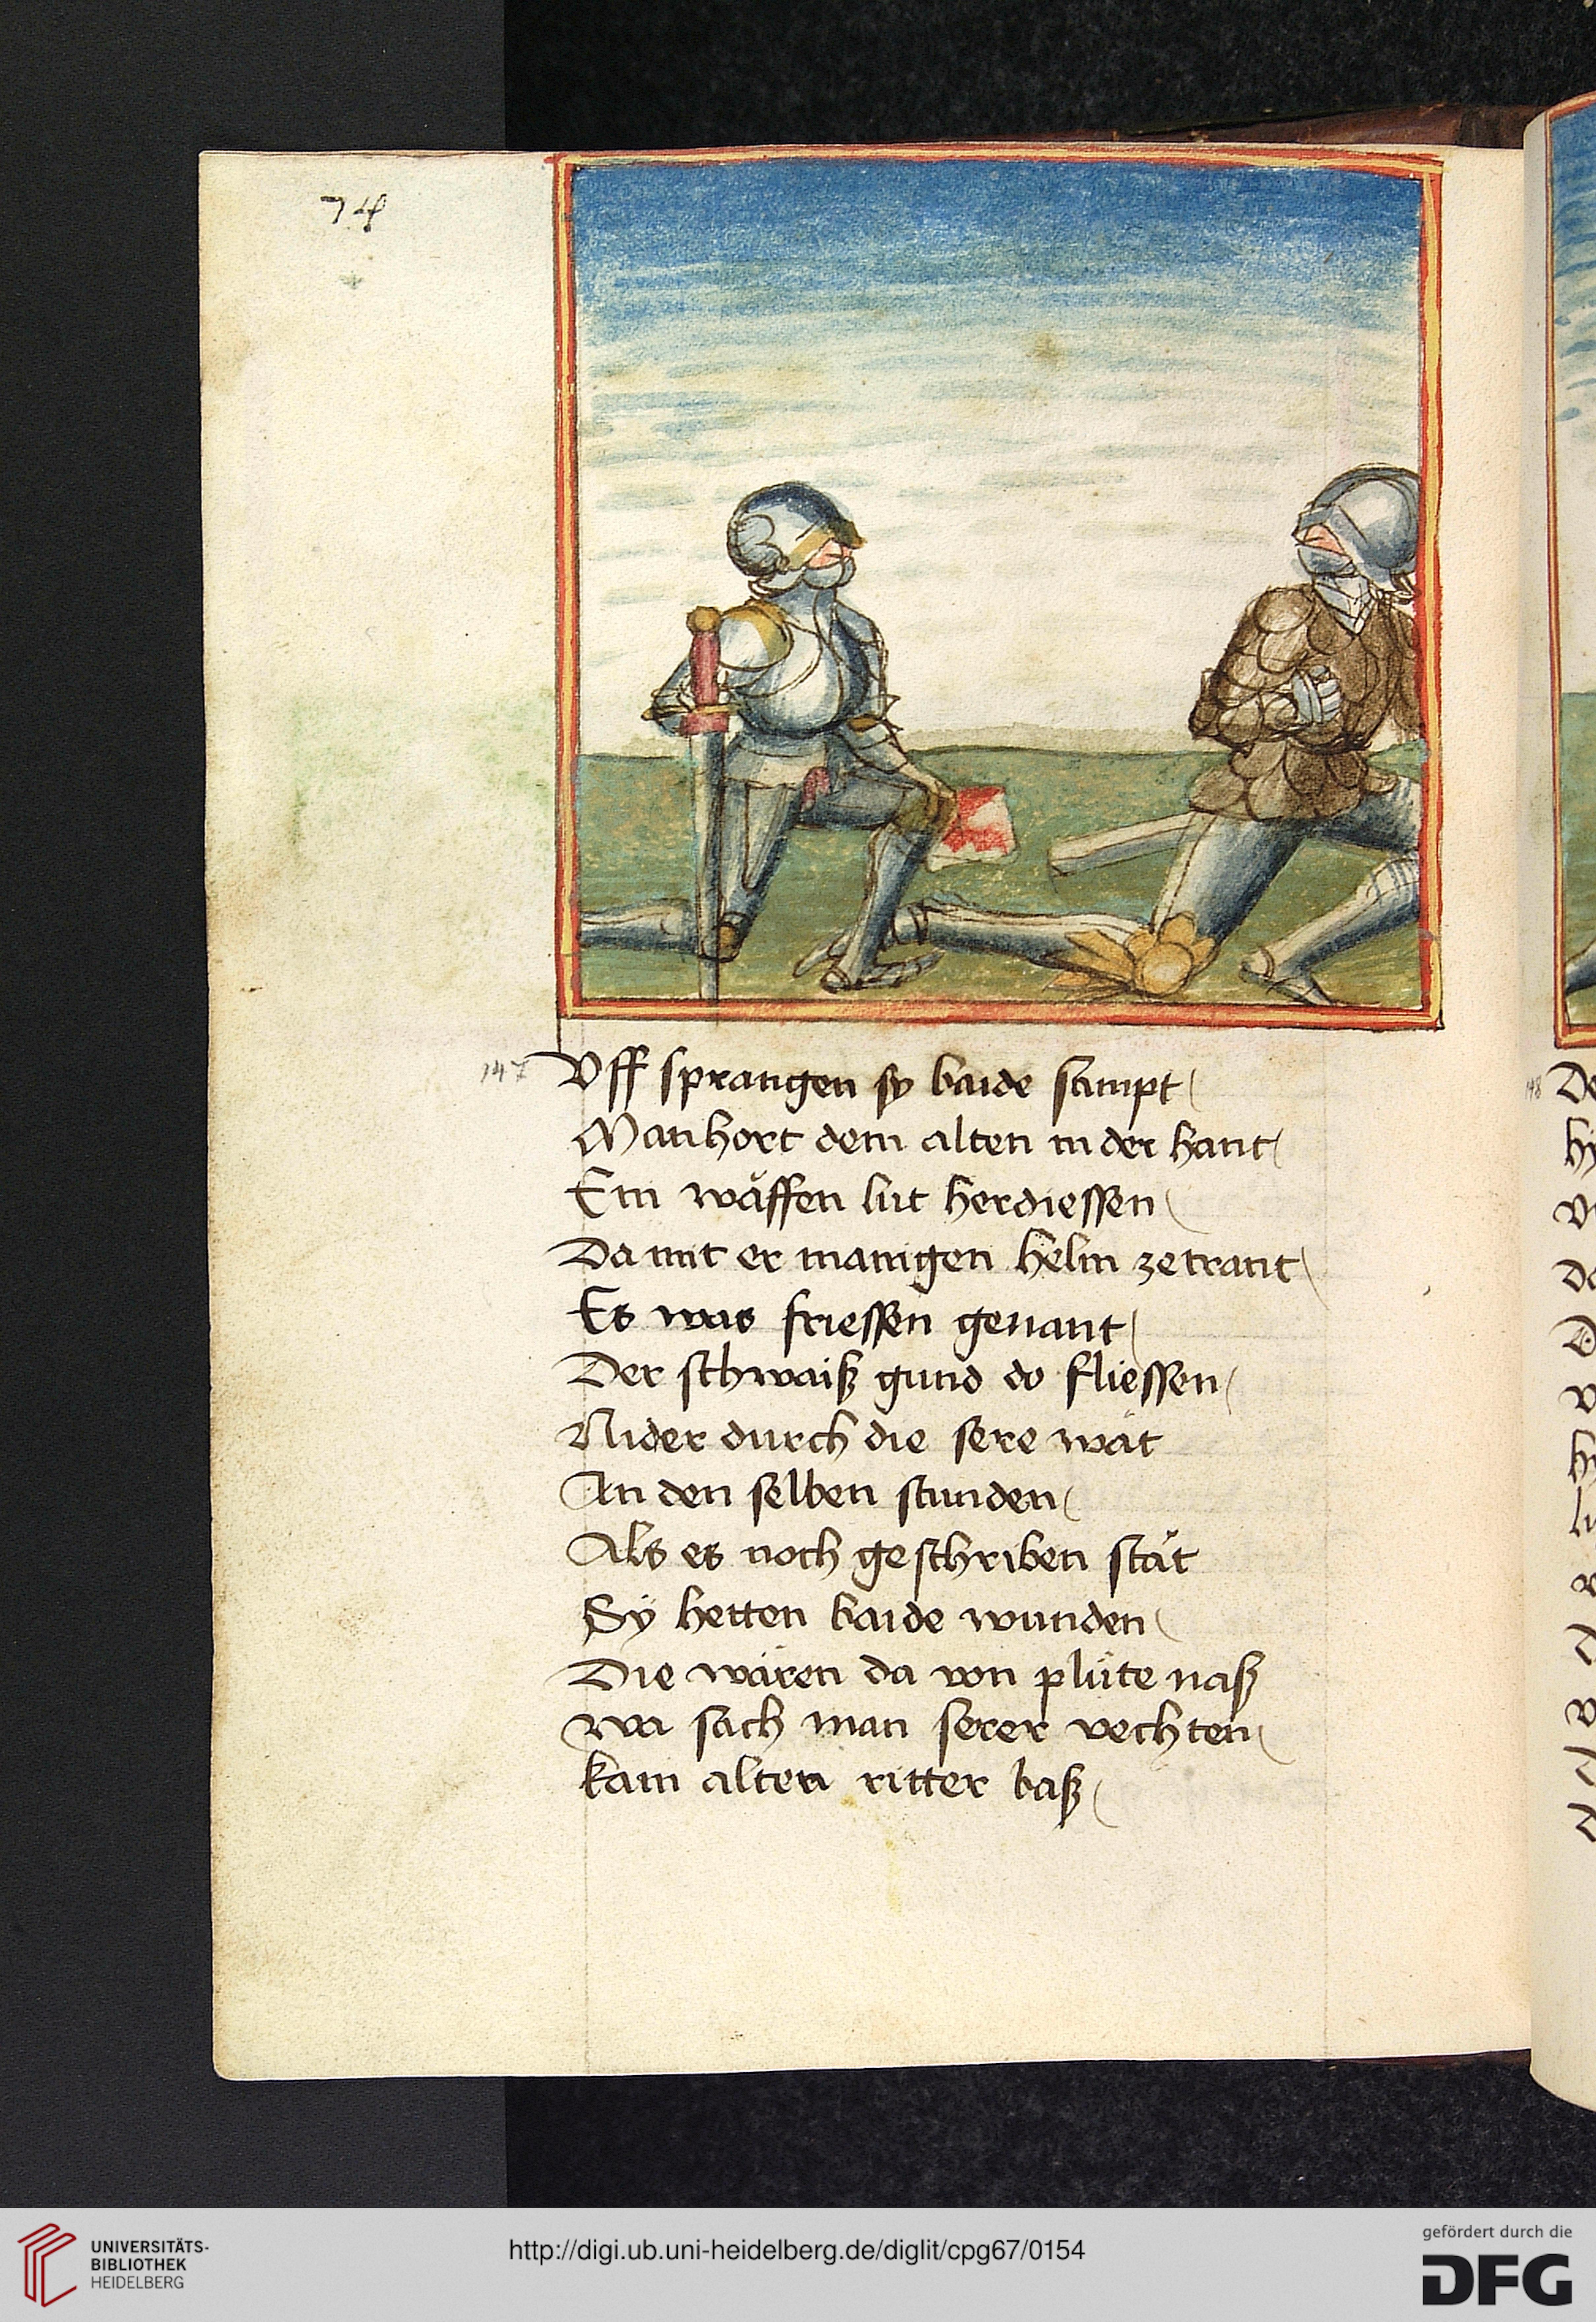 74
147
Vff sprangen sy baide sampt
Man hort dem alten in der hant
Ein wäffen lut herdiessen
Da mit er manigen helm zetrant
Es was friessen genant
Der schwaiß gund do fliessen
Nider durch die sere wät
An den selben stunden
Als es noch geschriben stät
Sÿ hetten baide wunden
Die wären da von plüte naß
wa sach man serer vechten
kain alten ritter baß
148
De
UNIVERSITÄTS-
BIBLIOTHEK
HEIDELBERG
http://digi.ub.uni-heidelberg.de/diglit/cpg67/0154
gefördert durch die
DFG